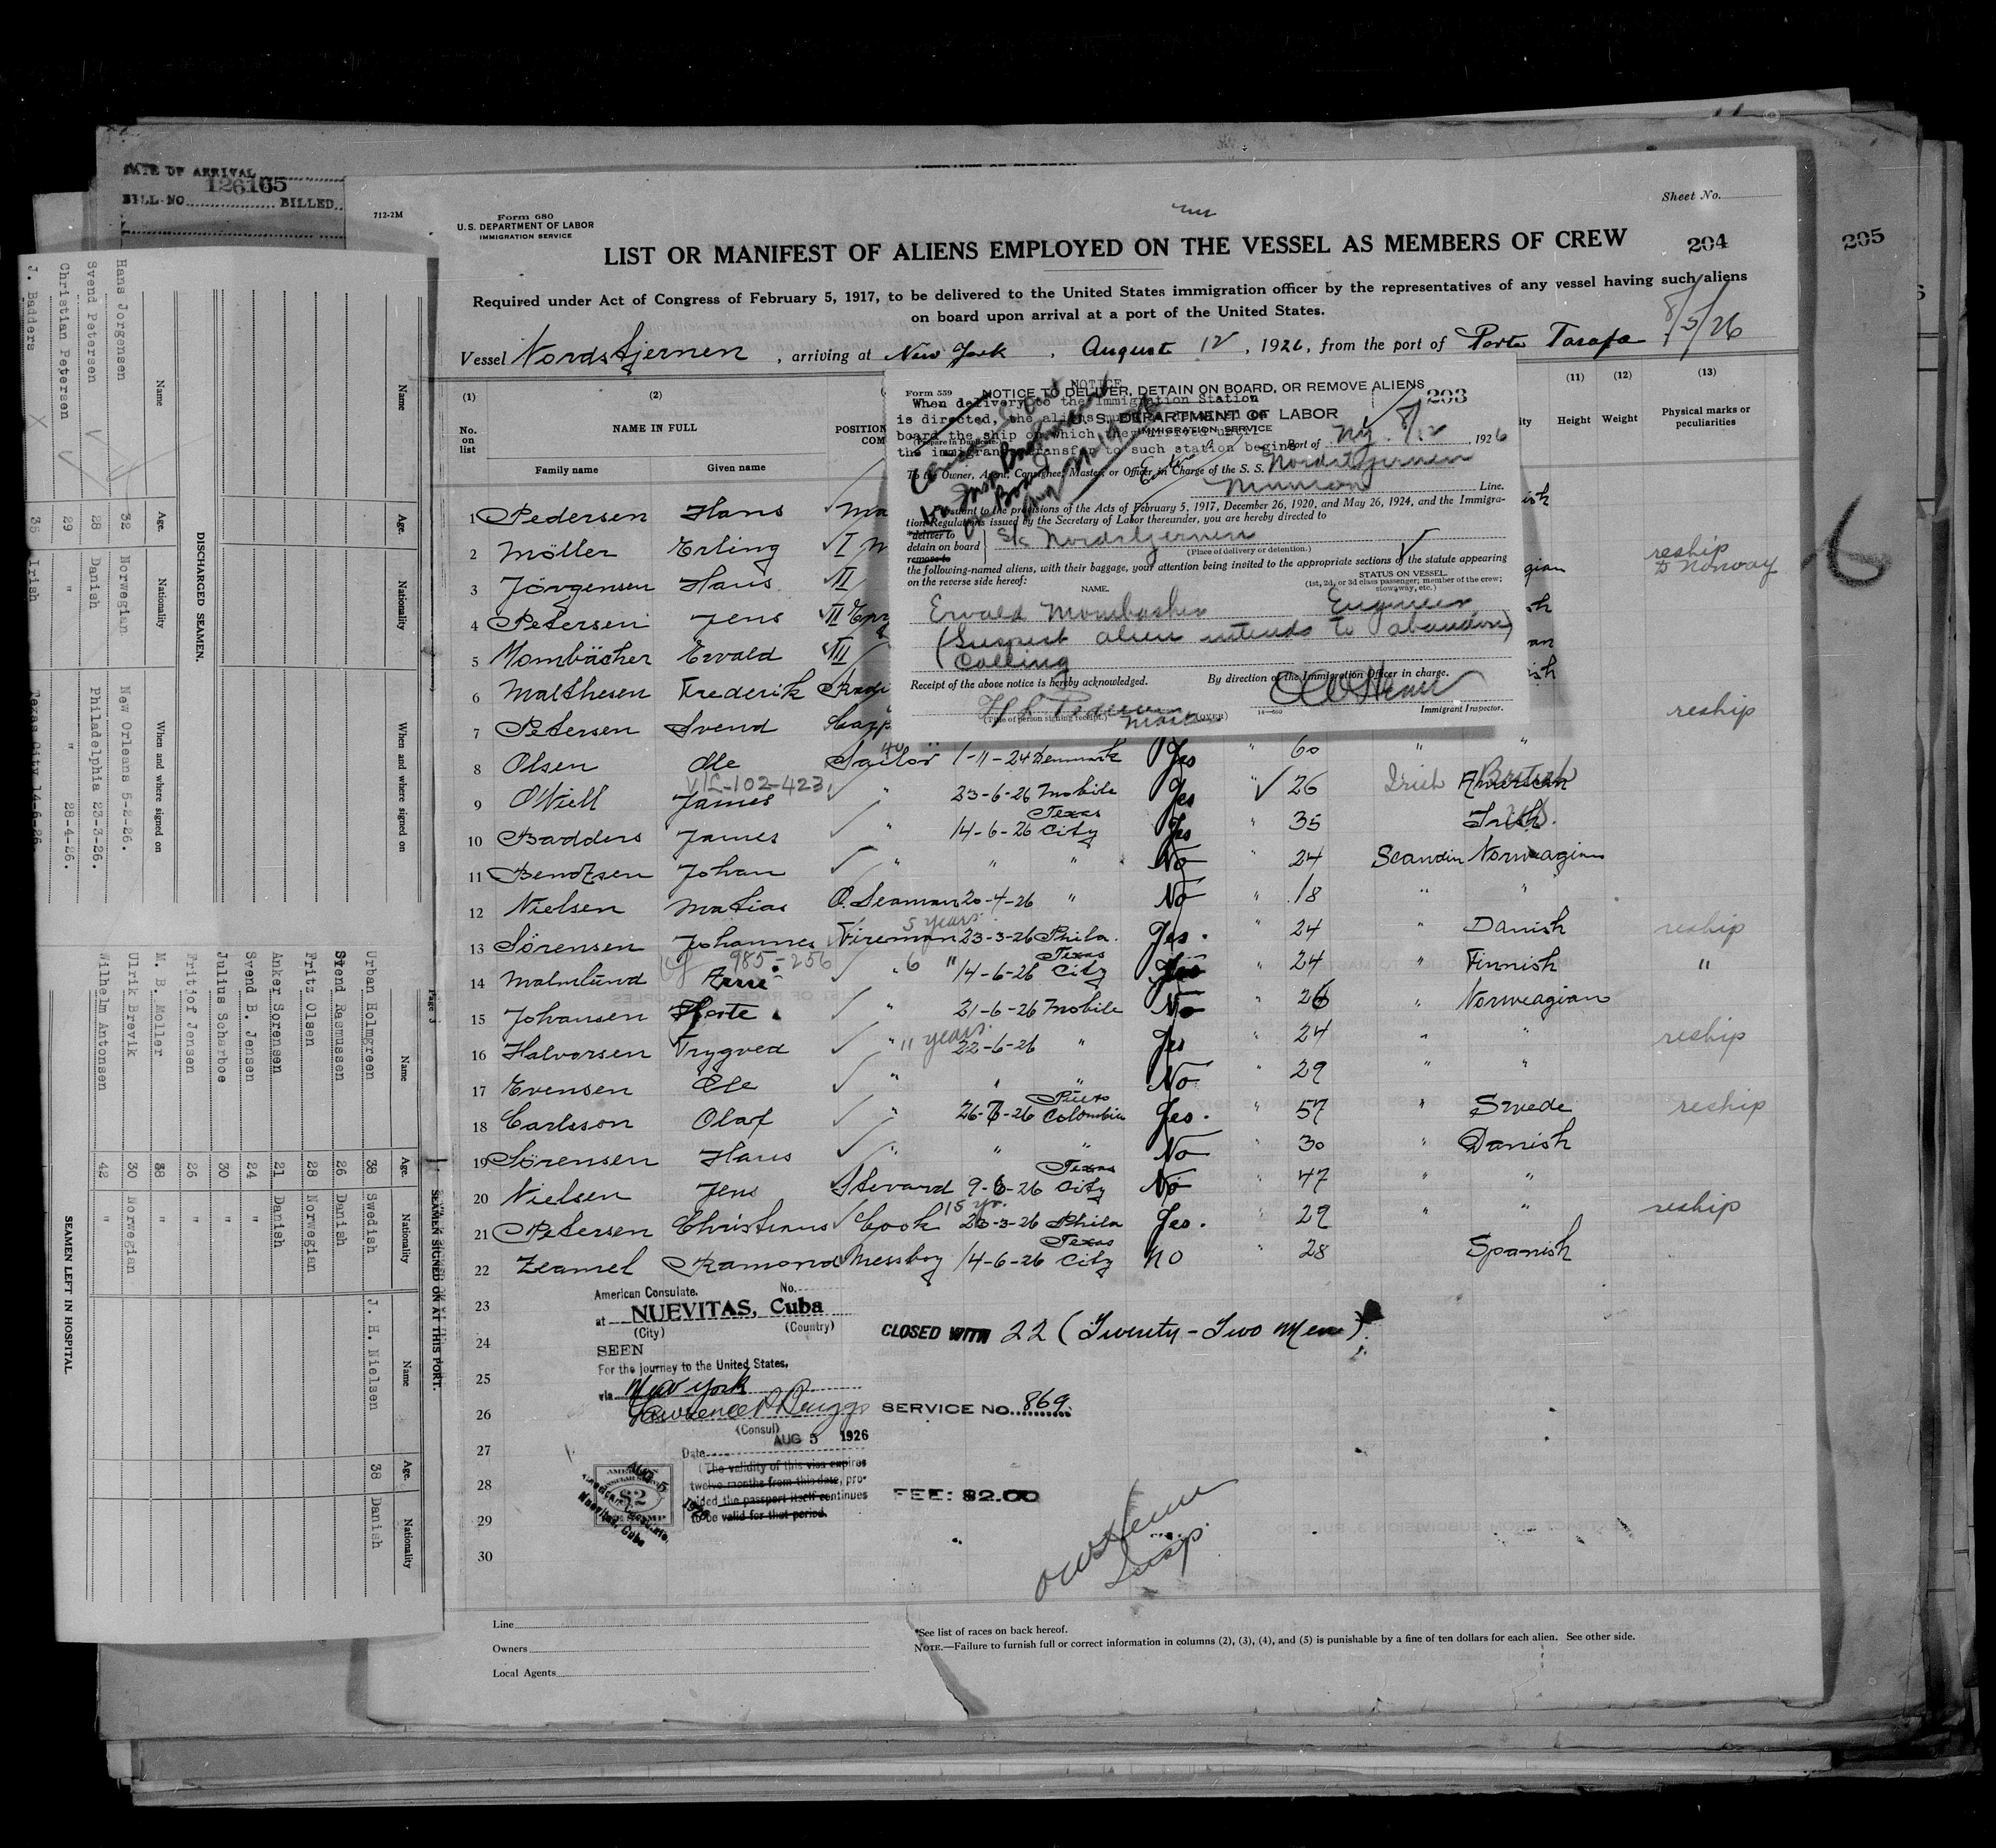 DATE OF ARRIVAL
126165
BILL NO. BILLED
712-2M
Form 680
U. S. DEPARTMENT OF LABOR
IMMIGRATION SERVICE
Sheet No.
LIST OR MANIFEST OF ALIENS EMPLOYED ON THE VESSEL AS MEMBERS OF CREW
204
205
Required under Act of Congress of February 5, 1917, to be delivered to the United States immigration officer by the representatives of any vessel having such aliens
on board upon arrival at a port of the United States.
Vessel Nordstjernen, arriving at New York, August 12, 1926, from the port of Porto Tarafa 8/5/26
(1) (2) (11) (12) (13)
No. on list
NAME IN FULL
POSITION
Family name Given name
Height Weight Physical marks or peculiarities
Form 559
NOTICE
NOTICE TO DELIVER, DETAIN ON BOARD, OR REMOVE ALIENS
203
When delivery to the Immigration Station
is directed, the aliens
U. S. DEPARTMENT OF LABOR
board the ship on which they arrived until
IMMIGRATION SERVICE
(Prepare in Duplicate.)
the immigrant transfer to such station begins
Port of NY. 8/12, 1926
To the Owner, Agent, Consignee, Master, or Officer in Charge of the S. S. Nordstjernen
Munson Line.
Pursuant to the provisions of the Acts of February 5, 1917, December 26, 1920, and May 26, 1924, and the Immigra-
tion Regulations issued by the Secretary of Labor thereunder, you are hereby directed to
*deliver to
detain on board
remove to
Nordstjernen
(Place of delivery or detention.)
the following-named aliens, with their baggage, your attention being invited to the appropriate sections of the statute appearing
on the reverse side hereof:
NAME.
STATUS ON VESSEL
(1st, 2d, or 3d class passenger; member of the crew; stowaway, etc.)
Ervald Mombacher Engineer
(Suspect alien intends to abandon
Calling)
Receipt of the above notice is hereby acknowledged.
By direction of the Immigration Officer in charge.
(Title of person signing receipt.)
(OVER)
Immigrant Inspector.
1 Pedersen Hans Ma
2 Möller Erling I
3 Jörgensen Hans II
reship to Norway
4 Petersen Jens III
5 Mombächer Ervald III
6 Malthesen Frederik Radi
7 Petersen Svend Carp reship
8 Olsen Ole Sailor 1-11-24 Denmark Yes " 60 " "
V/L-102-423
9 O'Niell James " 23-6-26 Mobile Yes " 26 Irish American British
10 Badders James " 14-6-26 Texas City Yes " 35 Irish
11 Bendtsen Johan " " " No " 24 Scandin Norweagian
12 Nielsen Matias O. Seaman 20-4-26 " No " 18 " "
5 years
13 Sörensen Johannes Fireman 23-3-26 Phila. Yes " 24 " Danish reship
985-256
14 Malmlund Arne " 6 " 14-6-26 Texas City Yes " 24 " Finnish "
15 Johansen Hjerte " 21-6-26 Mobile No " 26 " Norweagian
16 Halvorsen Trygved " 11 years 22-6-26 " Yes " 24 " " reship
17 Evensen Ole " " " No " 29 " "
18 Carlsson Olaf " 26-7-26 Puerto Colombia Yes " 57 " Swede reship
19 Sörensen Hans " " " No " 30 " Danish
20 Nielsen Jens Stevard 9-6-26 Texas City No " 47 " "
15 yr.
21 Petersen Christians Cook 23-3-26 Phila Yes " 29 " " reship
22 Zeamel Ramond Messboy 14-6-26 Texas City No " 28 Spanish
23
24
25
26
27
28
29
30
American Consulate. No.
at NUEVITAS, Cuba
(City) (Country)
SEEN
For the journey to the United States,
via New York
Lawrence P. Briggs
(Consul)
AUG 5 1926
Date
(The validity of this visa expires
twelve months from this date, pro-
vided the passport itself continues
to be valid for that period.
CLOSED WITH 22 (Twenty-Two Men)
SERVICE NO. 869
FEE: $2.00
$2
Insp.
Line
Owners
Local Agents
*See list of races on back hereof.
NOTE.—Failure to furnish full or correct information in columns (2), (3), (4), and (5) is punishable by a fine of ten dollars for each alien. See other side.
DISCHARGED SEAMEN.
Name Age. Nationality When and where signed on
Name Age. Nationality When and where signed on
Hans Jorgensen 32 Norwegian New Orleans 5-2-26.
Svend Petersen 28 Danish Philadelphia 23-3-26.
Christian Petersen 29 " " 28-4-26.
J. Badders 35 Irish Texas City 14-6-26.
Page 3
SEAMEN SIGNED ON AT THIS PORT.
Name Age. Nationality Name Age. Nationality
Urban Holmgreen 38 Swedish J. H. Nielsen 38 Danish
Svend Rasmussen 26 Danish
Fritz Olsen 28 Norwegian
Anker Sorensen 21 Danish
Svend B. Jensen 24 "
Julius Scharboe 30 "
Fritjof Jensen 26 "
M. B. Moller 38 "
Ulrik Brevik 30 Norwegian
Wilhelm Antonsen 42 "
SEAMEN LEFT IN HOSPITAL